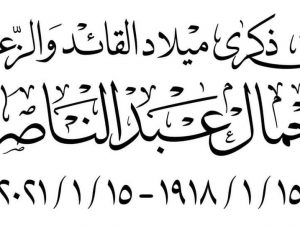 ذكرى ميلاد القائد والزع
جمال عبد الناصر
١٥/١/١٩١٨ - ١٥/١/٢٠٢١